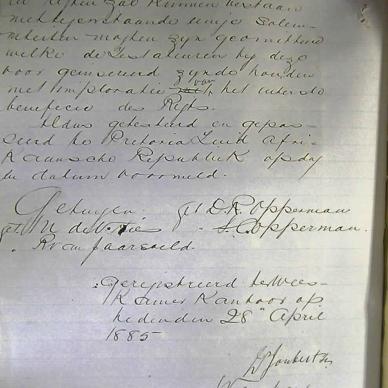 en regten zal kunnen bestaan
niettegenstaande eenige Solem-
niteiten mogten zyn geomitteerd
welke de Testateuren by deze
voor geinsereerd zynde houden
met imploratie van het uiterste
beneficie des Regts.
Aldus getesteerd en gepas-
seerd te Pretoria Zuid Afri-
kaansche Republiek op dag
en datum voormeld.
Getuigen get D.R. Opperman
get N de S.C. Opperman.
R van Paarsveld.
Geregistreerd te Wees-
Kamer Kantoor op
heden den 28n April
1885
Joubert